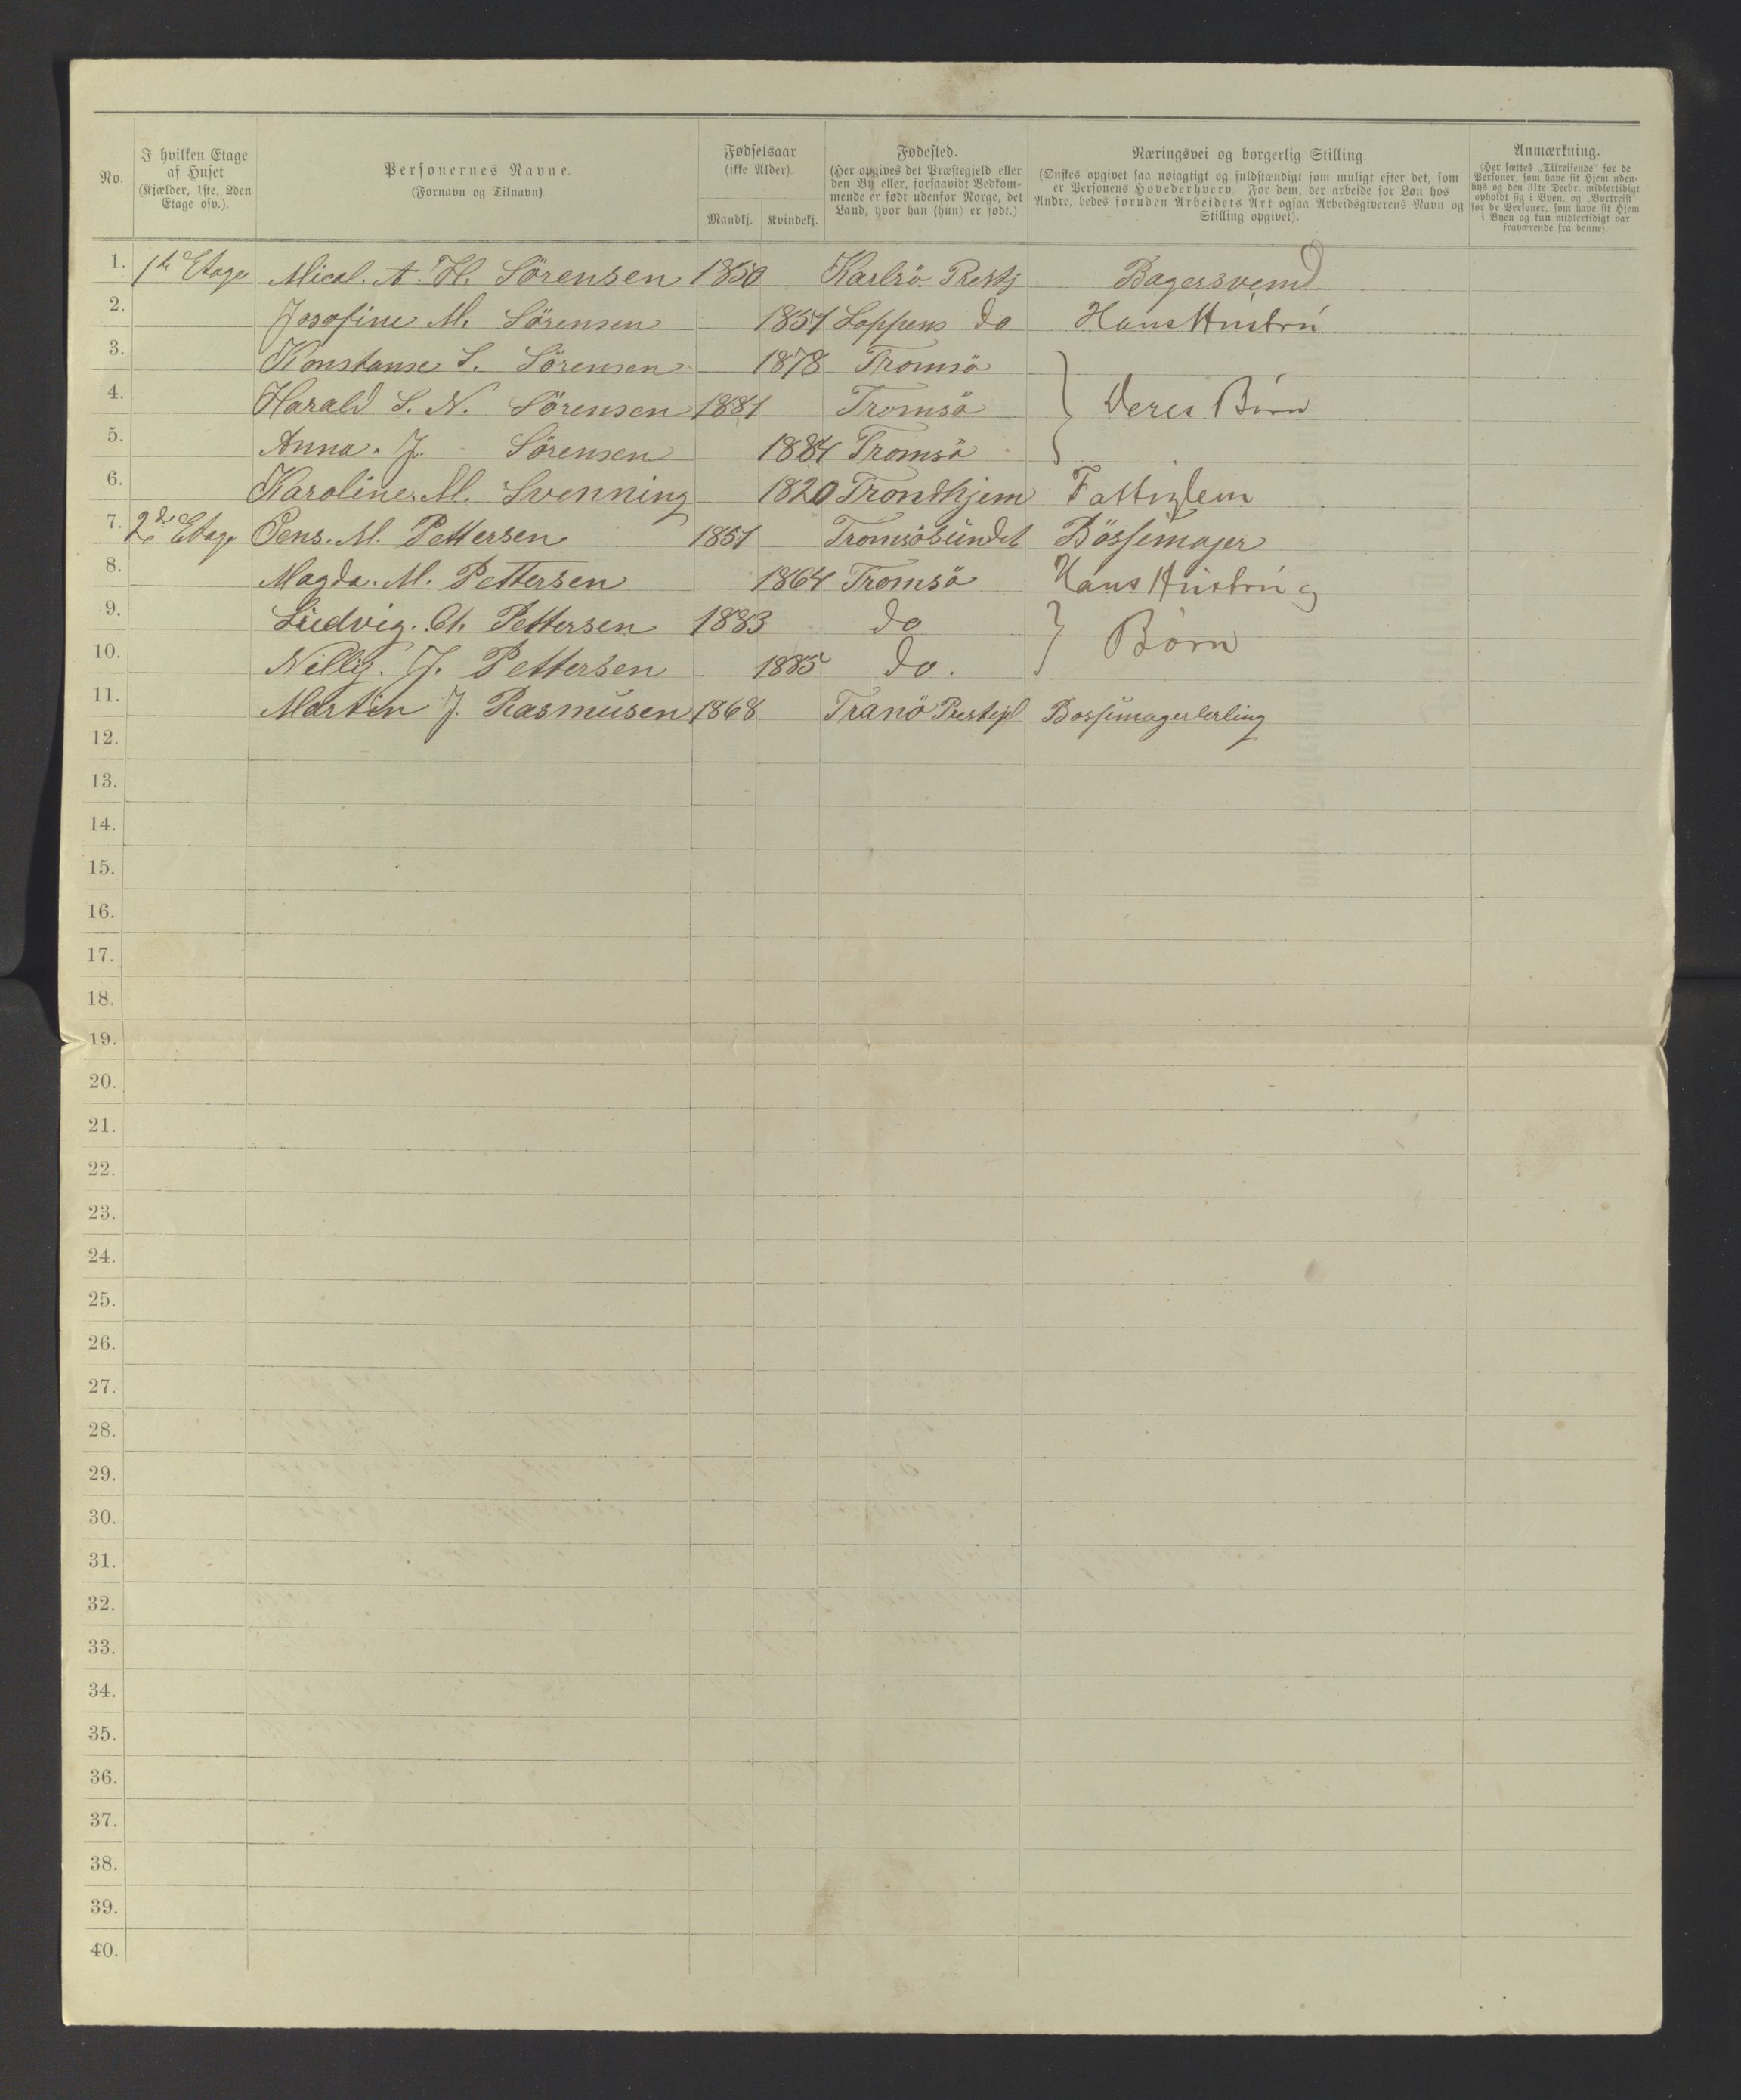 No.
I hvilken Etage
af Huset
(Kjælder, 1ste, 2den
Etage osv.).
Personernes Navne.
(Fornavn og Tilnavn)
Fødselsaar
(ikke Alder)
Mandkj. Kvindekj.
Fødested.
(Her opgives det Præstegjeld eller
den By eller, forsaavidt Vedkom-
mende er født udenfor Norge, det
Land, hvor han (hun) er født.)
Næringsvei og borgerlig Stilling.
(Ønskes opgivet saa nøiagtigt og fuldstændigt som muligt efter det, som
er Personens Hovederhverv. For dem, der arbeide for Løn hos
Andre, bedes foruden Arbeidets Art ogsaa Arbeidsgiverens Navn og
Stilling opgivet).
Anmærkning.
(Her sættes „Tilreisende“ for de
Personer, som have sit Hjem uden-
bys og den 31te Decbr. midlertidigt
opholdt sig i Byen, og „Bortreist“
for de Personer, som have sit Hjem
i Byen og kun midlertidigt var
fraværende fra denne).
1. 1ste Etage Mical. A. H. Sörensen 1850 Karlsö Prestgj Bagersvend
2. Josofine M. Sörensen 1857 Loppens do Hans Hustru
3. Konstanse S. Sörensen 1878 Tromsö
4. Harald S. N. Sörensen 1881 Tromsö } Deres Börn
5. Anna. J. Sörensen 1884 Tromsö
6. Karoline. M. Svenning 1820 Trondhjem Fattiglem
7. 2de Etage Pens. M. Pettersen 1851 Tromsösundet Bössemager
8. Magda. M. Pettersen 1864 Tromsö Hans Hustru og
9. Ludvig. A. Pettersen 1883 do
} Børn
10. Nilly. J. Pettersen 1885 do.
11. Martin J. Rasmusen 1868 Tranö Prestgjl Bossemagerlerling
12.
13.
14.
15.
16.
17.
18.
19.
20.
21.
22.
23.
24.
25.
26.
27.
28.
29.
30.
31.
32.
33.
34.
35.
36.
37.
38.
39.
40.